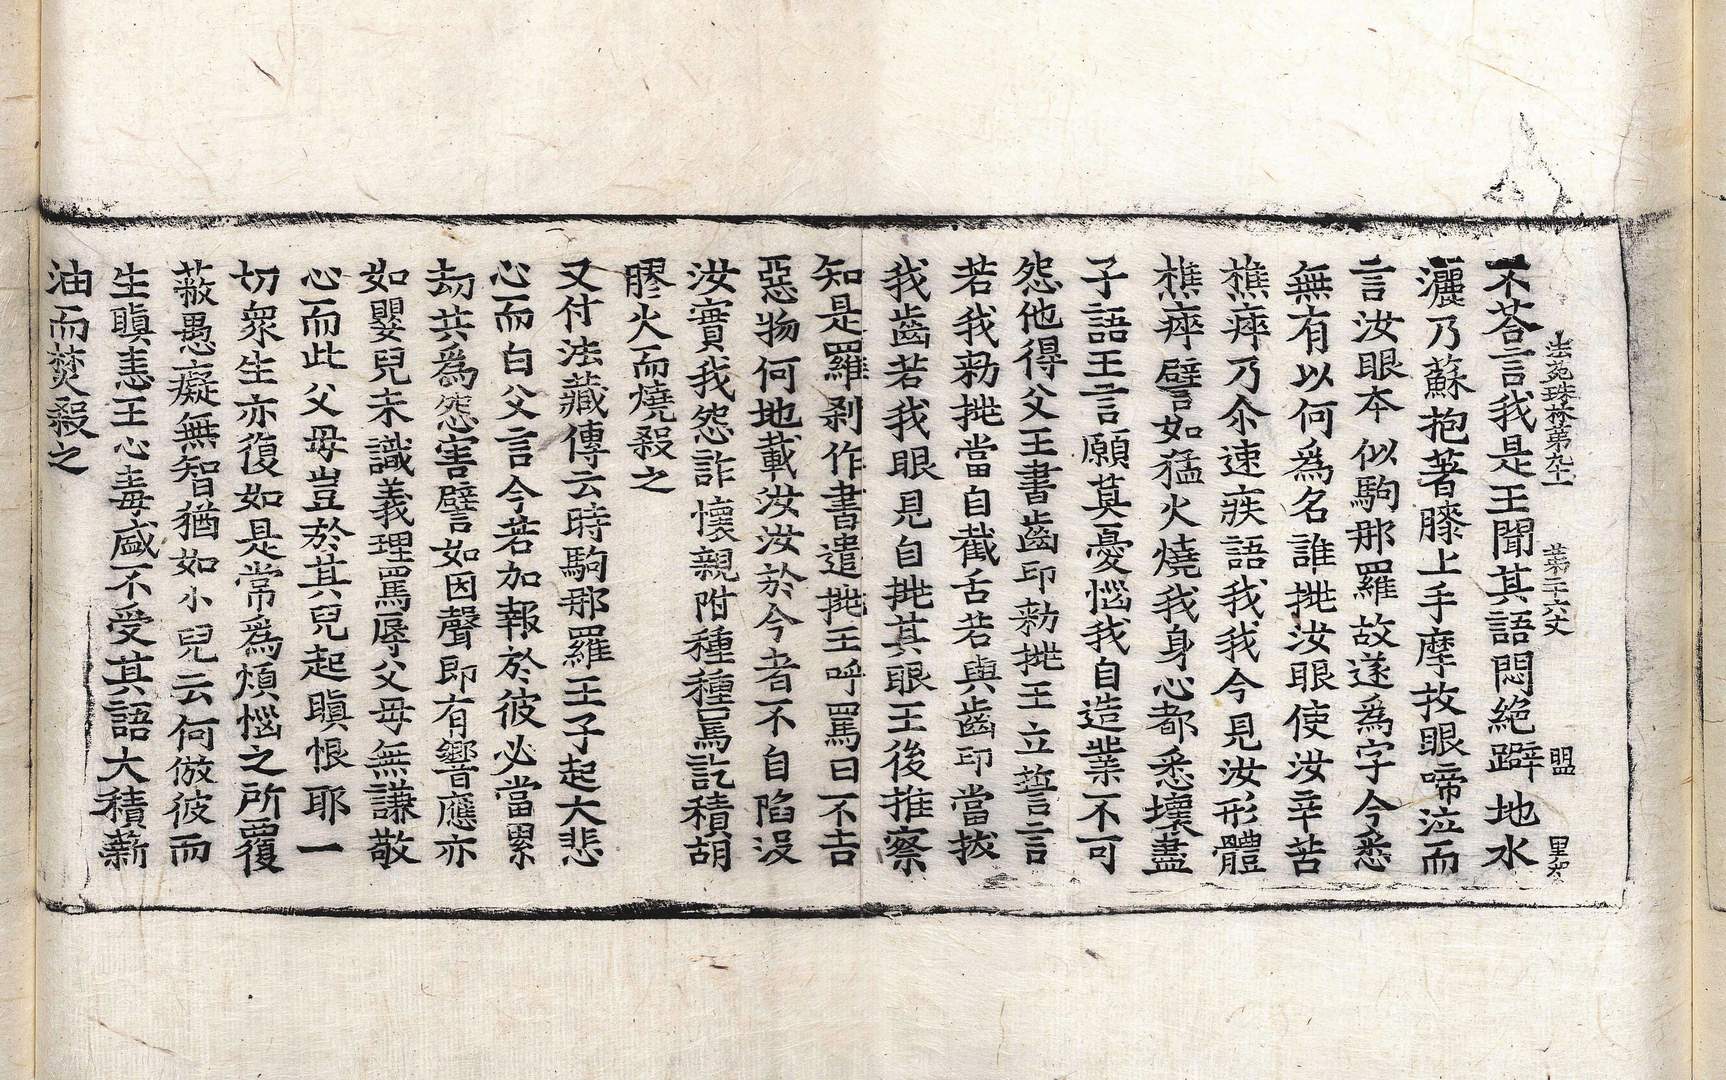 法苑珠林第九十一 第二十六丈 盟
不荅言我是王聞其語悶絕躃地水
灑乃蘇抱著膝上手摩牧眼啼泣而
言汝眼本似駒那羅故遂爲字今悉
無有以何爲名誰挑汝眼使汝辛苦
樵瘁乃尒速疾語我我今見汝形體
樵瘁譬如猛火燒我身心都悉壞盡
子語王言願莫憂惱我自造業不可
怨他得父王書齒印勑挑王立誓言
若我勑挑當自截舌若與齒印當拔
我齒若我眼見自挑其眼王後推察
知是羅剎作書遣挑王呼罵曰不吉
惡物何地載汝汝於今者不自陷沒
汝實我怨詐懷親附種種罵訖積胡
膠火而燒殺之
又付法藏傳云時駒那羅王子起大悲
心而白父言今若加報於彼必當累
劫共爲怨害譬如因聲即有響應亦
如嬰兒未識義理罵辱父母無謙敬
心而此父母豈於其兒起瞋恨耶一
切衆生亦復如是常爲煩惱之所覆
蔽愚癡無智猶如小兒云何倣彼而
生瞋恚王心毒盛不受其語大積薪
油而焚殺之